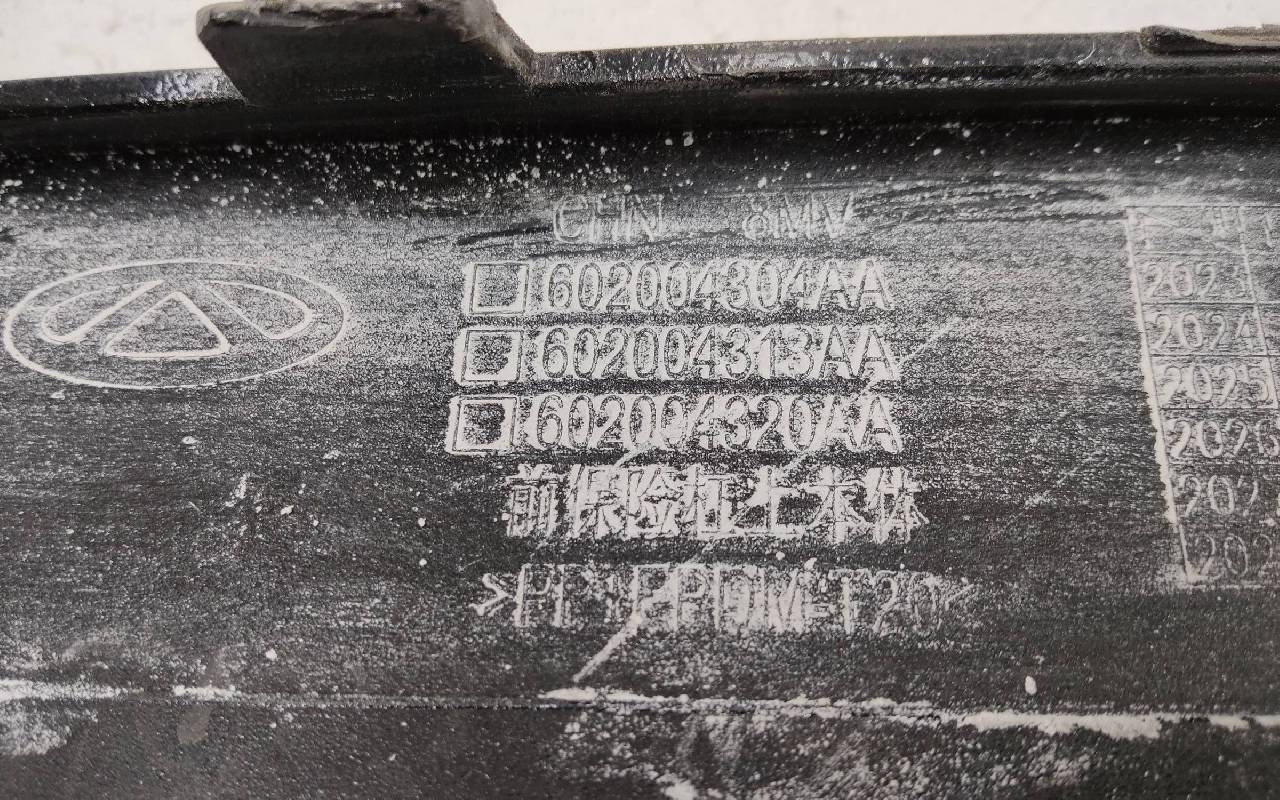 CHN 8MV
602004304AA
602004313AA
602004320AA
前保险杠上本体
>PP+EPDM-T20<
2023
2024
2025
2026
202
202